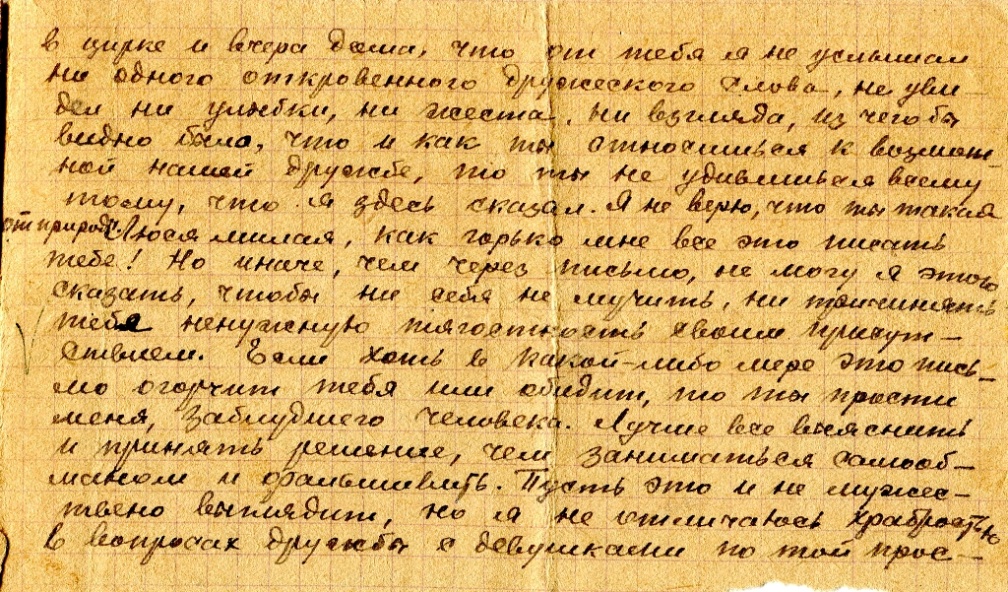 в цирке и вчера дома, что от тебя я не услышал
ни одного откровенного дружеского слова, не уви-
дел ни улыбки, ни жеста, ни взгляда, из чего бы
видно было, что и как ты относишься к возмож-
ной нашей дружбе, то ты не удивишься всему
тому, что я здесь сказал. Я не верю, что ты такая
от природы. Люся милая, как горько мне все это писать
тебе! Но иначе, чем через письмо, не могу я этого
сказать, чтобы ни себя не мучить, ни причинять
тебе ненужную тягостность своим присут-
ствием. Если хоть в какой-либо мере это пись-
мо огорчит тебя или обидит, то ты прости
меня, заблудшего человека. Лучше все выяснить
и принять решение, чем заниматься самооб-
маном и фальшивить. Пусть это и не мужес-
твено выглядит, но я не отличаюсь храбростью
в вопросах дружбы с девушками по той прос-